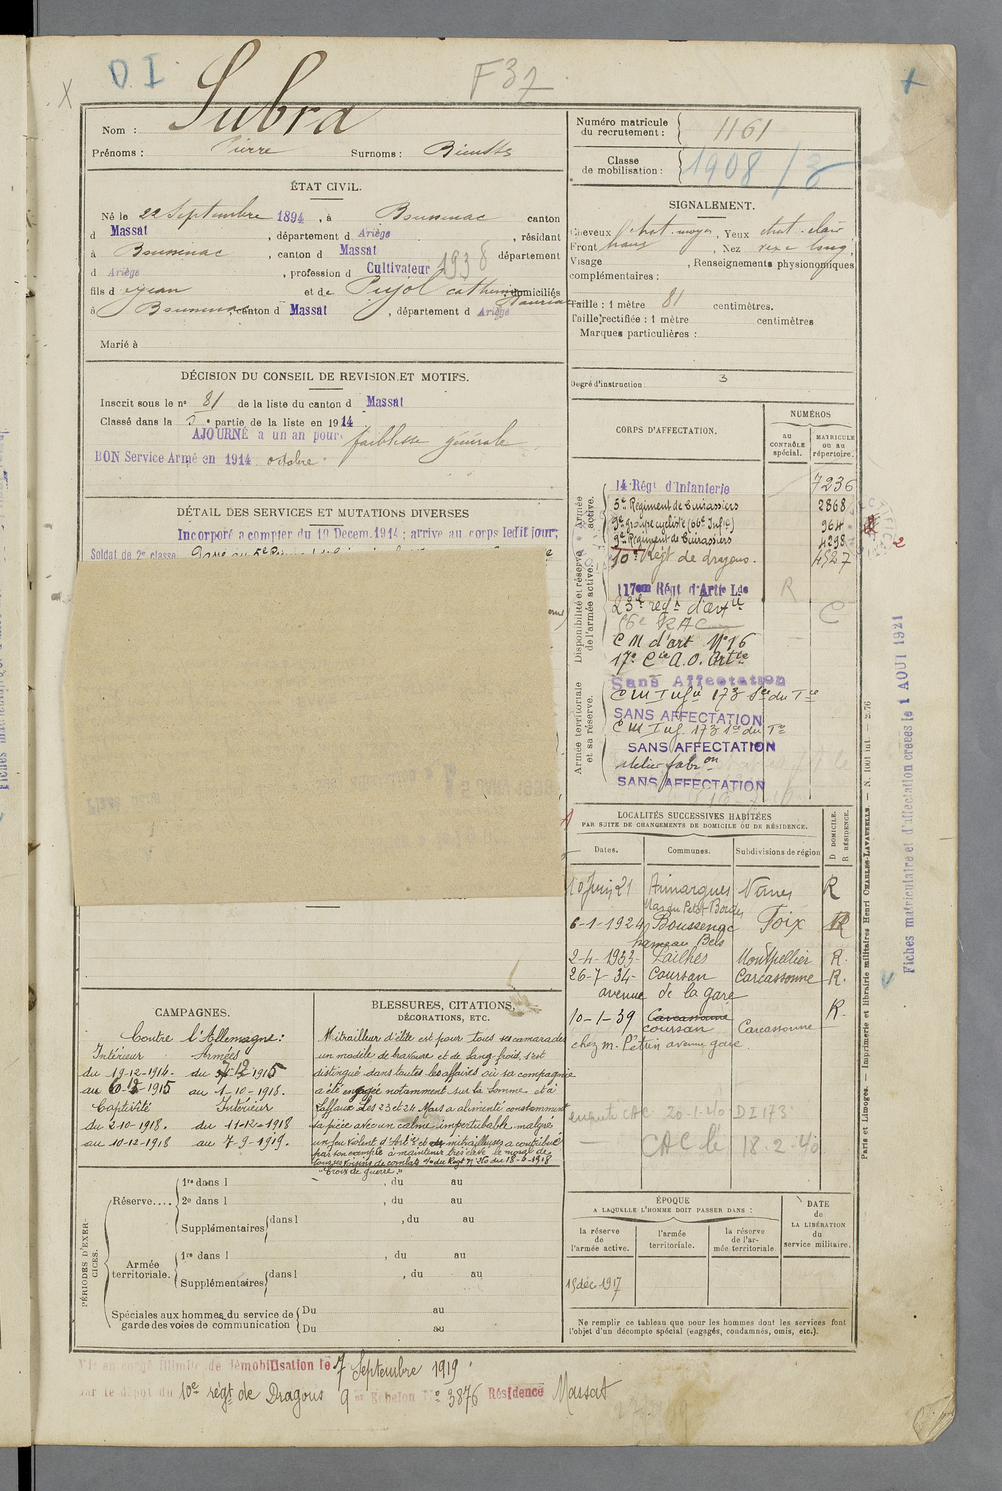 D I
F 37
Nom : Subra
Prénoms : Pierre Surnoms :
ÉTAT CIVIL.
Né le 22 Septembre 1894, à Boussenac canton
d Massat, département d Ariège, résidant
à Boussenac, canton d Massat département
d Ariège, profession d Cultivateur 1938
fils d Jean et de Pujol Catherine domiciliés
à Boussenac canton d Massat, département d Ariège
Marié à
DÉCISION DU CONSEIL DE REVISION ET MOTIFS.
Inscrit sous le n° 81 de la liste du canton d Massat
Classé dans la 5e partie de la liste en 1914
AJOURNÉ a un an pour faiblesse générale
BON Service Armé en 1914 octobre
DÉTAIL DES SERVICES ET MUTATIONS DIVERSES
Incorporé a compter du 19 Decem. 1914 ; arrive au corps ledit jour;
Soldat de 2e classe
CAMPAGNES.
Contre l'Allemagne :
Intérieur Armées
du 19-12-1914. du 1915
au 1915 au 1-10-1918.
Captivité Intérieur
du 2-10-1918. du 11-12-1918
au 10-12-1918 au 7-9-1919.
BLESSURES, CITATIONS,
DÉCORATIONS, ETC.
Mitrailleur d'élite est pour tous sa camarades
un modèle de bravoure et de sang-froid, s'est
distingué dans toutes les affaires où sa compagnie
a été engagée notamment sur la Somme et à
Laffaux. Les 23 et 24 Mars a alimenté constamment
sa pièce avec un calme imperturbable malgré
un feu violent d'Artie et de mitrailleuses a contribué
par son exemple à maintenir très élevé le moral de
du Regt N° 210 du 18-6-1918
"Croix de guerre."
PÉRIODES D'EXERCICES.
Réserve.... 1re dans l , du au
2e dans l , du au
Supplémentaires dans l , du au
Armée territoriale. 1re dans l , du au
Supplémentaires dans l , du au
Spéciales aux hommes du service de Du au
garde des voies de communication Du au
Mis en congé illimité de démobilisation le 7 Septembre 1919
par le dépôt du 10e régt de Dragons 9e Echelon N° 3876 Résidence Massat
Numéro matricule
du recrutement : 1161
Classe
de mobilisation : 1908/3
SIGNALEMENT.
Cheveux chat. moyen, Yeux chat. clair
Front , Nez long
Visage , Renseignements physionomiques
complémentaires :
Taille : 1 mètre 81 centimètres.
Taille rectifiée : 1 mètre centimètres
Marques particulières :
Degré d'instruction : 3
CORPS D'AFFECTATION.
NUMÉROS
AU CONTRÔLE spécial.
MATRICULE ou au répertoire.
Armée active.
14 Régt d'Infanterie 7236
5e Régiment de Cuirassiers 2868
9e groupe cycliste (66e Infie) 964
9e Régiment de Cuirassiers 4298
10e Régt de dragons. 4527
Disponibilité et réserve de l'armée active.
117em Régt d'Artie Lde R
23e regt d'artie
56e RAC C
C M d'art N° 16
17e Cie A.O. Artie
Armée territoriale et sa réserve.
Sans Affectation
C M Infie 173 1ere du Tre
SANS AFFECTATION
C M Inf. 173 1re du Tre
SANS AFFECTATION
atelier fabron
SANS AFFECTATION
LOCALITÉS SUCCESSIVES HABITÉES
PAR SUITE DE CHANGEMENTS DE DOMICILE OU DE RÉSIDENCE.
Dates. Communes. Subdivisions de région D DOMICILE. R RÉSIDENCE.
10 Juin 21 Aimargues Nimes R
Mas du Petit Bordes
6-1-1924 Boussenac Foix R
hameau Bels
2-4-1933- Lailhes Montpellier R.
26-7-34- Coursan Carcassonne R.
avenue de la gare
10-1-39 Carcassonne R.
coursan Carcassonne
chez M. Pétrin avenue gare.
CAC 20-1-40 DI 173
CAC le 18-2-40
ÉPOQUE
A LAQUELLE L'HOMME DOIT PASSER DANS :
la réserve de l'armée active.
l'armée territoriale.
la réserve de l'armée territoriale
DATE de LA LIBÉRATION du service militaire.
19 déc. 1917
Ne remplir ce tableau que pour les hommes dont les services font
l'objet d'un décompte spécial (engagés, condamnés, omis, etc.).
Paris et Limoges. — Imprimerie et librairie militaires Henri CHARLES-LAVAUZELLE. — N. 1001 int. — 2.76
Fiches matriculaire et d'affectation créées le 1 AOUT 1921